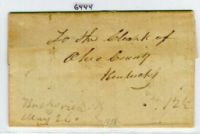 6444
To the Clerk of
Ohio County
Kentucky
12½
May 26